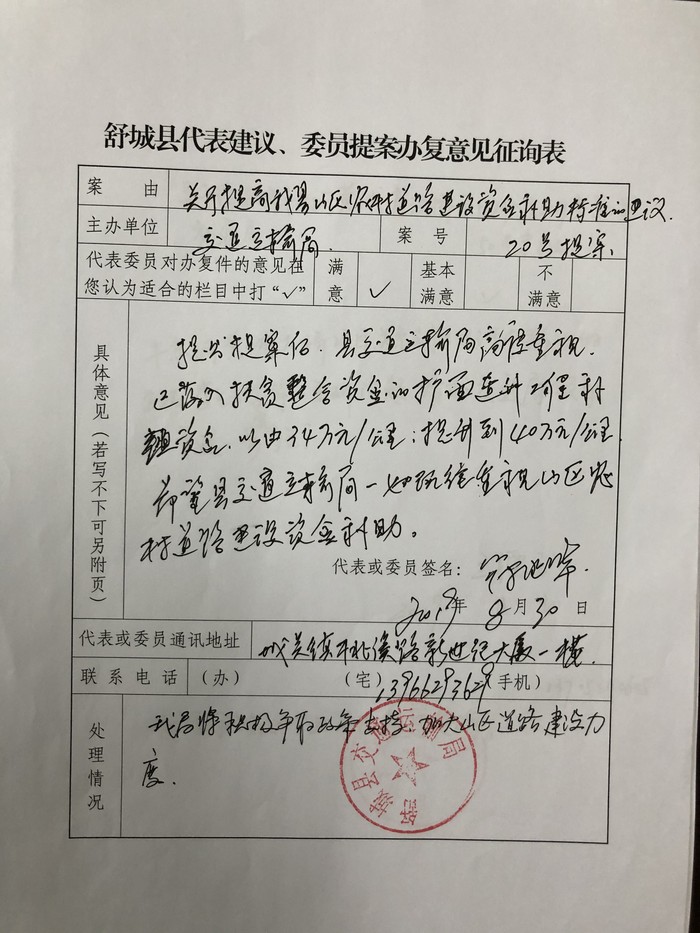 舒城县代表建议、委员提案办复意见征询表
案由 关于提高我县山区农村道路建设资金补助标准的建议
主办单位 交通运输局. 案号 20号提案.
代表委员对办复件的意见在您认为适合的栏目中打“√” 满意 √ 基本满意 不满意
具体意见（若写不下可另附页）
提出提案后.县交通运输局高度重视.
已落入扶贫整合资金的扩面延伸工程补
资金.以由34万元/公里;提升到40万元/公里.
希望县交通运输局一如既往重视山区农
村道路建设资金补助。
代表或委员签名：
2019年 8月30日
代表或委员通讯地址 城关镇 路新世纪大厦一楼.
联系电话 （办） （宅） 13966293629（手机）
处理情况
我局将积极争取政策支持.加大山区道路建设力
度.
舒城县交通运输局